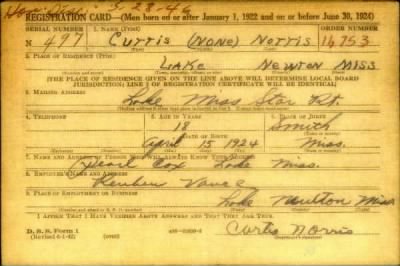 5-28-46
REGISTRATION CARD—(Men born on or after January 1, 1922 and on or before June 30, 1924)
SERIAL NUMBER 1. NAME (Print) ORDER NUMBER
N 497 Curtis (None) Norris 16753
2. PLACE OF RESIDENCE (Print)
LAKE Newton Miss
[THE PLACE OF RESIDENCE GIVEN ON THE LINE ABOVE WILL DETERMINE LOCAL BOARD
JURISDICTION; LINE 2 OF REGISTRATION CERTIFICATE WILL BE IDENTICAL]
3. MAILING ADDRESS
Lake Miss Star Rt.
4. TELEPHONE 5. AGE IN YEARS 6. PLACE OF BIRTH
18 Smith
DATE OF BIRTH
April 15 1924 Miss.
7. NAME AND ADDRESS OF PERSON WHO WILL ALWAYS KNOW YOUR ADDRESS
Pearl Cox Lake Miss.
8. EMPLOYER'S NAME AND ADDRESS
Reuben Vance
9. PLACE OF EMPLOYMENT OR BUSINESS
Lake Newton Miss
I AFFIRM THAT I HAVE VERIFIED ABOVE ANSWERS AND THAT THEY ARE TRUE.
D. S. S. Form 1
(Revised 6-1-42) Curtis Norris